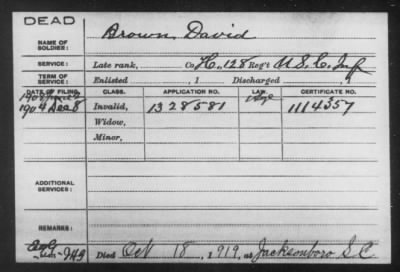 DEAD
NAME OF SOLDIER: Brown, David
SERVICE: Late rank, Co. H, 128 Reg't U.S.C. Inf
TERM OF SERVICE: Enlisted , 1 Discharged , 1
DATE OF FILING. CLASS. APPLICATION NO. LAW. CERTIFICATE NO.
1904 Dec 8 Invalid, 1328581 1114357
Widow,
Minor,
ADDITIONAL SERVICES:
REMARKS:
Died Oct 18, 1919, at Jacksonboro S.C.